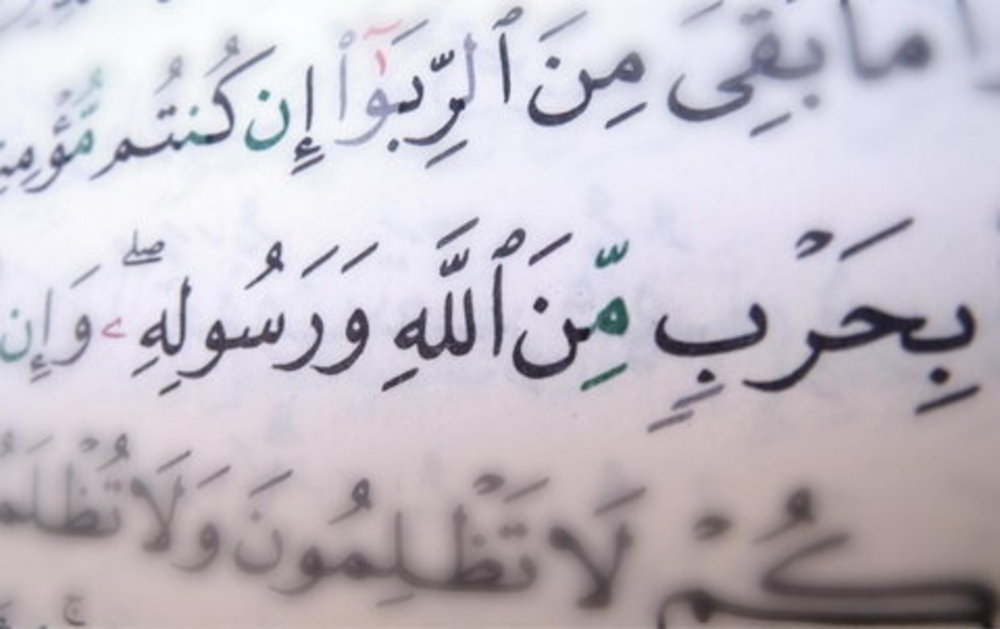 مَا بَقِىَ مِنَ ٱلرِّبَوٰٓا۟ إِن كُنتُم
بِحَرْبٍ مِّنَ ٱللَّهِ وَرَسُولِهِۦ ۖ وَإِن
لَا تَظْلِمُونَ وَلَا